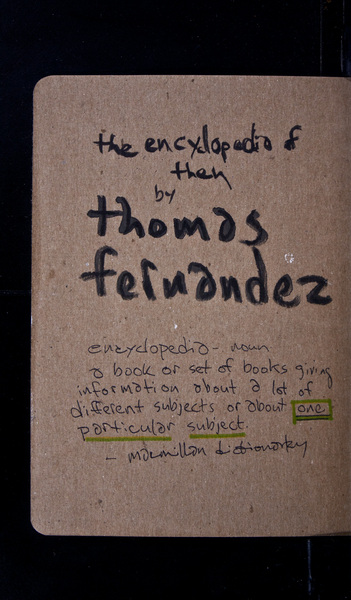 the encyclopedia of
them
by
thomas
fernandez
encyclopedia - noun
a book or set of books giving
information about a lot of
different subjects or about one
particular subject.
- macmillan dictionarky